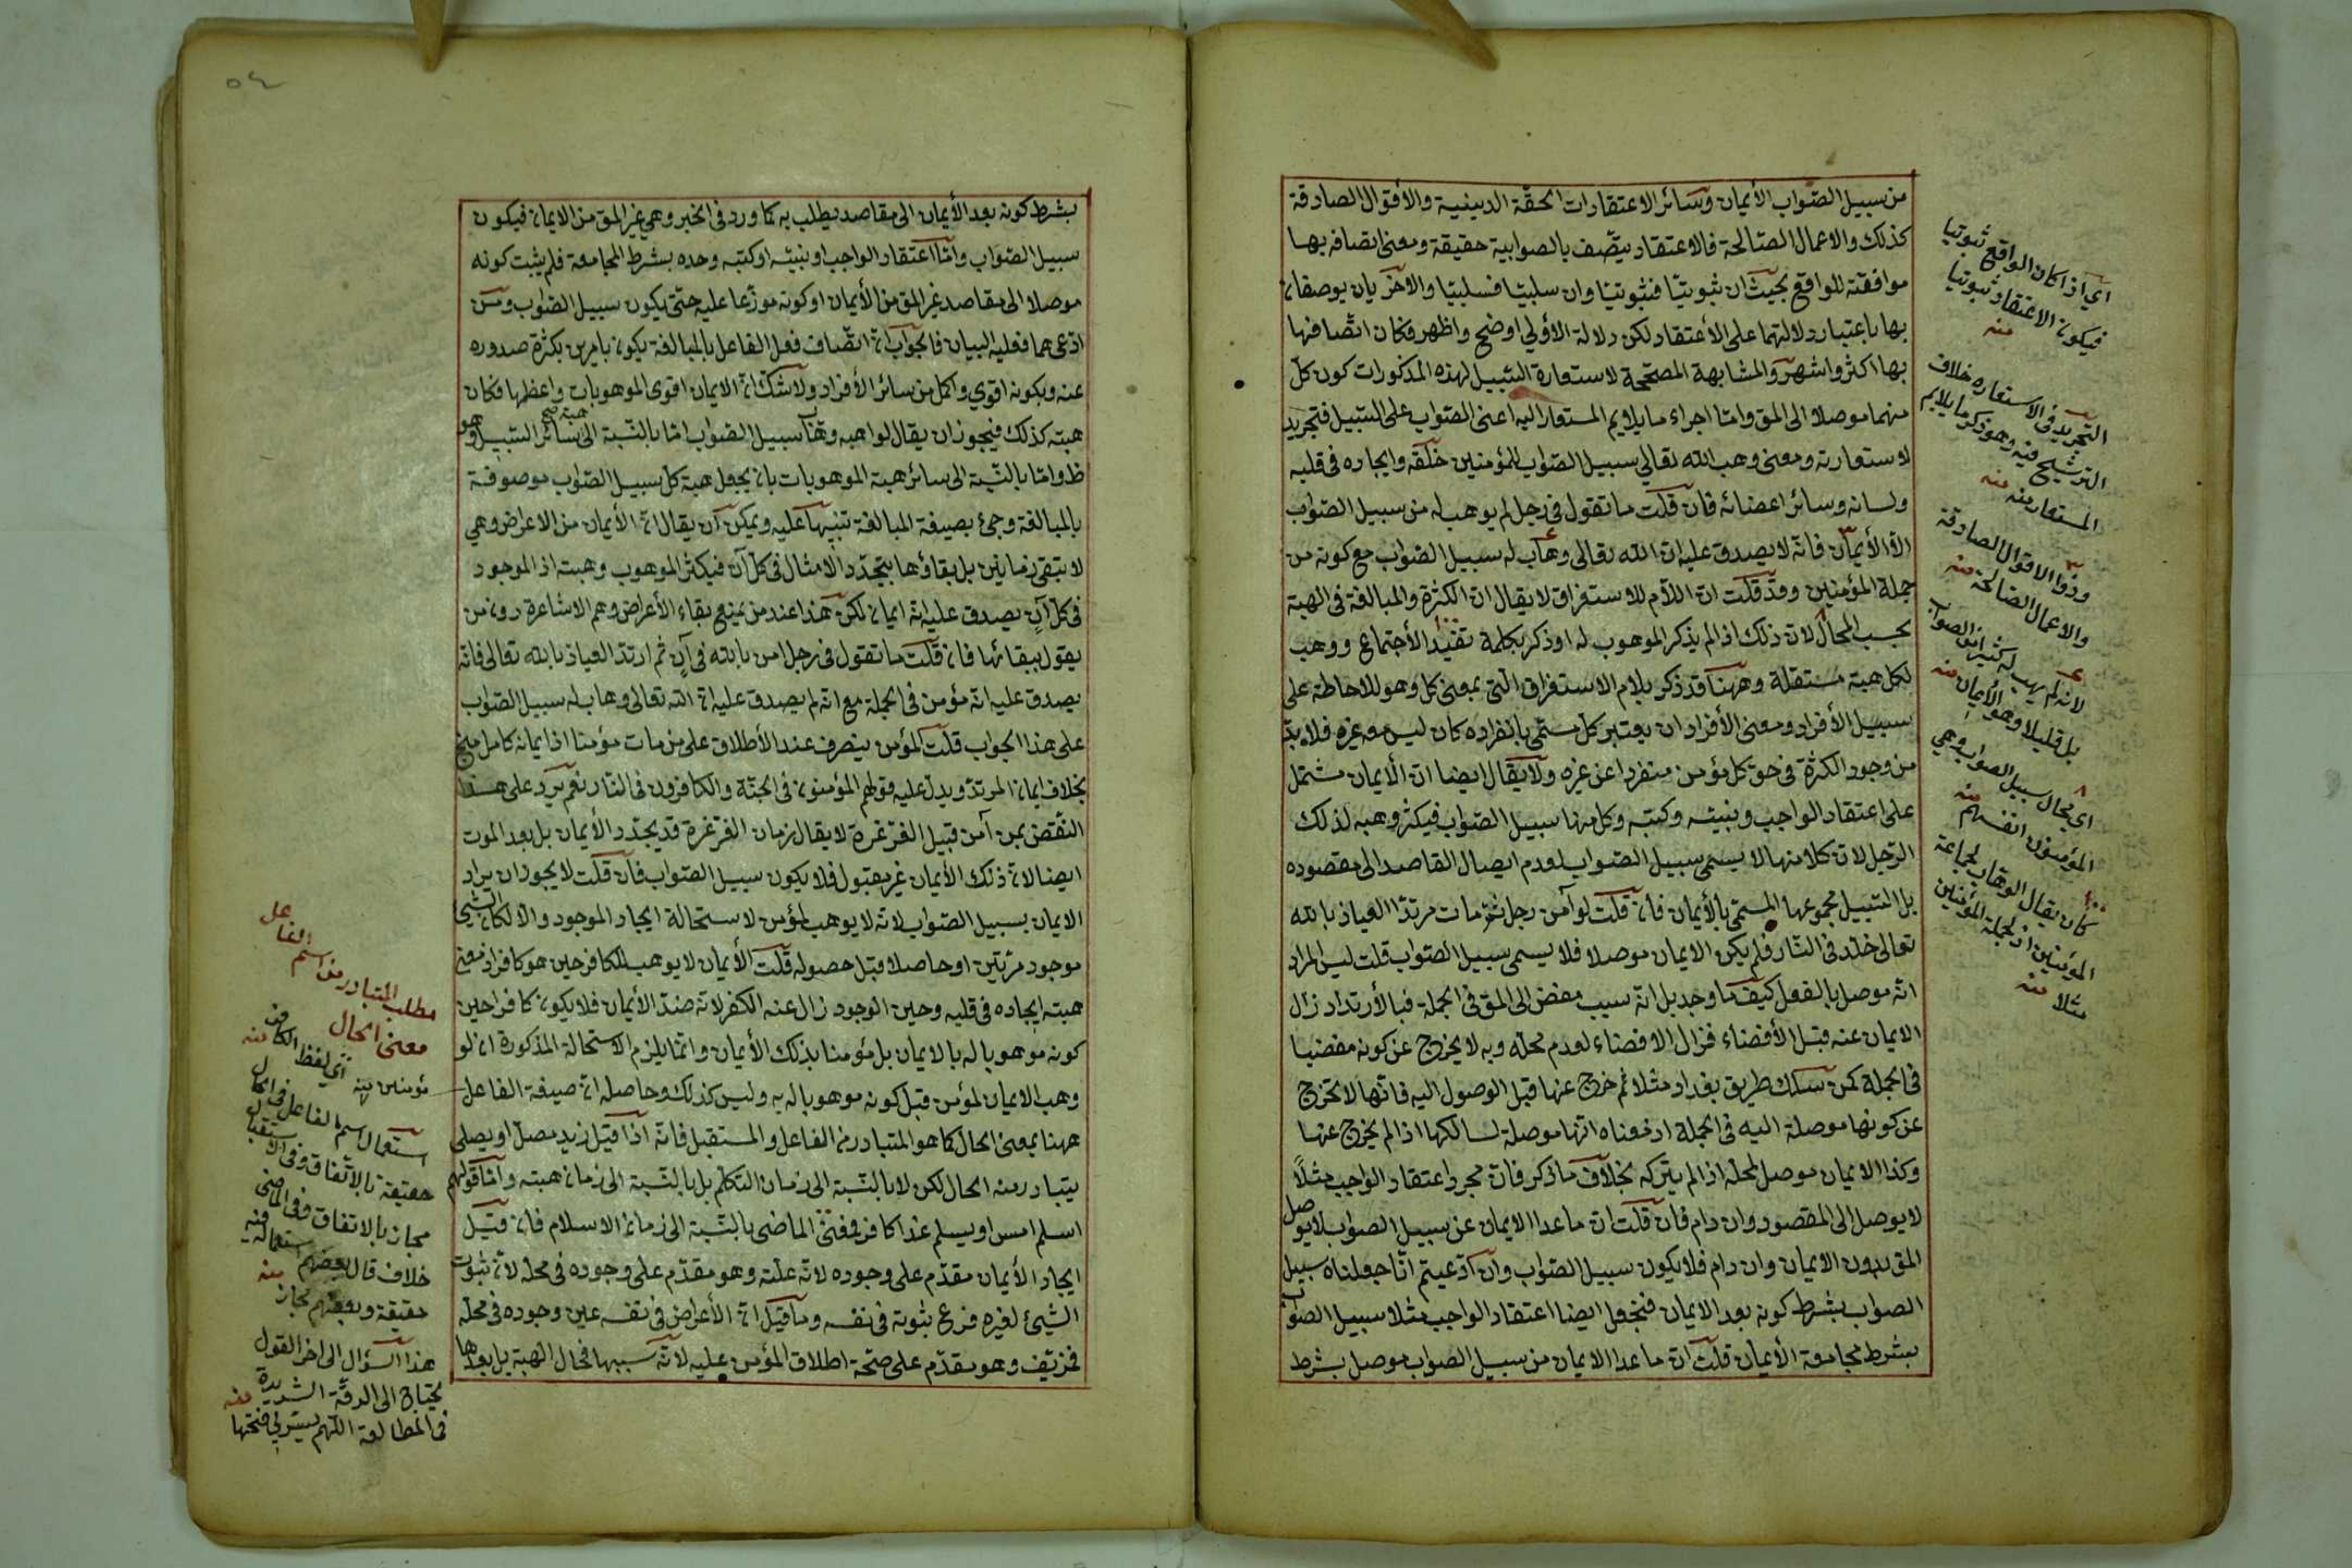 من سبيل الصّواب الأيمان وسائر الاعتقادات الحقّة الدينية والأقوال الصادقة
كذلك والاعمال الصّالحة فالاعتقاد يتّصف بالصوابية حقيقة ومعنى اتصافه بها
موافقته للواقع بحيث ان ثبوتيّا فثبوتيّا وان سلبيّا فسلبيّا والاخريان يوصفان
بها باعتبار دلالتهما على الأعتقاد لكن دلالة الأولى اوضح واظهر فكان اتّصافها
بها اكثر واشهر والمشابهة المصحّحة لاستعارة السّبيل لهذه المذكورات كون كلّ
منهما موصلا الى المق وامّا اجراء ما يلايم المستعار اليه اعنى الصّواب على السّبيل فتجريد
لاستعارته ومعنى وهب الله تعالى سبيل الصّواب للمؤمنين خلقه وايجاده فى قلبه
ولسانه وسائر اعضائه فان قلت ما تقول فى رجل لم يوهب له من سبيل الصّواب
الّا الأيمان فانّه لا يصدق عليه انّ الله تعالى وهّاب له سبيل الصّواب مع كونه من
جملة المؤمنين وقد قلت انّ اللّام للاستغراق لا يقال ان الكثرة والمبالغة فى الهبة
بحسب المحال لانّ ذلك اذا لم يذكر الموهوب له او ذكر بكلمة تفيد الأجتماع ووهب
لكل هبة مستقلة وههنا قد ذكر بلام الاستغراق الّتى بمعنى كل وهو للاحاطة على
سبيل الأفراد ومعنى الأفراد ان يعتبر كلّ مسمّى بانفراده كان ليس معه غيره فلا بدّ
من وجود الكثرة فى حق كل مؤمن منفردا عن غيره ولا يقال ايضا انّ الأيمان مشتمل
على اعتقاد الواجب ونبيّه وكتبه وكل منها سبيل الصّواب فيكثر وهبه لذلك
الرّجل لانّ كلا منها لا يسمى سبيل الصّواب لعدم ايصال القاصد الى مقصوده
بل السّبيل مجموعها المسمّى بالأيمان فان قلت لو آمن رجل ثم مات مرتدّا العياذ بالله
تعالى خلّد فى النّار فلم يكن الايمان موصلا فلا يسمى سبيل الصّواب قلت ليس المراد
انّه موصل بالفعل كيف ما وجد بل انّه سبب مفض الى المق فى الجملة فبالأرتداد زال
الايمان عنه قبل الأفضاء فزال الافضاء لعدم محلّه وبه لا يخرج عن كونه مفضيا
فى الجملة كمن سلك طريق بغداد مثلا ثم خرج عنها قبل الوصول اليه فانّها لا تخرج
عن كونها موصلة اليه فى الجملة اذ معناه انّها موصلة لسالكها اذا لم يخرج عنها
وكذا الايمان موصل لمحلّه اذا لم يتركه بخلاف ما ذكر فانّ مجرد اعتقاد الواجب مثلاً
لا يوصل الى المقصود وان دام فان قلت انّ ما عدا الايمان عن سبيل الصّواب لا يوصل
المق بدون الايمان وان دام فلا يكون سبيل الصّواب وان ادّعيتم انّا جعلناه سبيل
الصواب بشرط كونه بعد الايمان فنجعل ايضا اعتقاد الواجب مثلا سبيل الصّواب
بشرط مجامعة الأيمان قلت انّ ما عدا الايمان من سبيل الصواب موصل بشرط
اى اذا كان الواقع ثبوتيا
فيكون الاعتقاد ثبوتيا
منه
التجريد فى الاستعاره خلاف
الترشيح فيه وهو ذكر ما يلايم
المستعار منه منه
وذوا الاقوال الصادقة
والاعمال الصالحة منه
لانه لم يهب له كثير من الصواب
بل قليلا وهو الأيمان منه
اى بحال سبيل الصواب وهى
المؤمنون انفسهم منه
كأن يقال الوهاب لجماعة
المؤمنين او لجملة المؤمنين
مثلا منه
٥٤
بشرط كونه بعد الأيمان الى مقاصد يطلب به كما ورد فى الخبر وهى غير المق من الايمان فيكون
سبيل الصّواب وامّا اعتقاد الواجب او نبيّه او كتبه وحده بشرط المجامعة فلم يثبت كونه
موصلا الى مقاصد غير المق من الأيمان او كونه موزّعا عليه حتى يكون سبيل الصّواب ومن
ادّعى هما فعليه البيان فالجواب انّ اتّصاف فعل الفاعل بالمبالغة يكون بامرين بكثرة صدوره
عنه وبكونه اقوى واكمل من سائر الأفراد ولا شكّ انّ الايمان اقوى الموهوبات واعظمها فكان
هبته كذلك فيجوز ان يقال لواهبه وهّاب سبيل الصّواب امّا بالنّسبة الى هبة سائر السّبيل وهو
ظ وامّا بالنّسبة الى سائر هبة الموهوبات بان يجعل هبة كل سبيل الصّواب موصوفة
بالمبالغة وجئ بصيغة المبالغة تنبيها عليه ويمكن ان يقال انّ الأيمان من الاعراض وهى
لا تبقى زمانين بل بقاؤها بتجدّد الامثال فى كلّ آن فيكثر الموهوب وهبته اذ الموجود
فى كلّ آن يصدق عليه انّه ايمان لكن هذا عند من يمنع بقاء الأعراض وهم الاشاعرة دون من
يقول ببقائها فان قلت ما تقول فى رجل امن بالله فى آن ثم ارتدّ العياذ بالله تعالى فانّه
يصدق عليه انّه مؤمن فى الجملة مع انّه لم يصدق عليه انّ الله تعالى وهاب له سبيل الصّواب
على هذا الجواب قلت المؤمن ينصرف عند الأطلاق على من مات مؤمنا اذ ايمانه كامل منج
بخلاف ايمان المرتدّ ويدلّ عليه قولهم المؤمنون فى الجنّة والكافرون فى النّار نعم يرد على هذا
النّقض بمن آمن قبيل الغرغرة لا يقال زمان الغرغرة قد يجدّد الأيمان بل بعد الموت
ايضا لانّ ذلك الأيمان غير مقبول فلا يكون سبيل الصّواب فان قلت لا يجوز ان يراد
الايمان بسبيل الصّواب لانّه لا يوهب لمؤمن لاستحالة ايجاد الموجود والّا لكان الشئ
موجود مرّتين او حاصلا قبل حصوله قلت الأيمان لا يوهب للكافر حين هو كافر اذ معنى
هبته ايجاده فى قلبه وحين الوجود زال عنه الكفر لانّه ضدّ الأيمان فلا يكون كافرا حين
كونه موهوبا له بالايمان بل مؤمنا بذلك الأيمان وانّما يلزم الاستحالة المذكورة ان لو
وهب الايمان لمؤمن قبل كونه موهوبا له به وليس كذلك وحاصله انّ صيغة الفاعل
ههنا بمعنى الحال كما هو المتبادر من الفاعل والمستقبل فانّه اذا قيل زيد مصلّ او يصلى
يتبادر منه الحال لكن لا بالنّسبة الى زمان التكلّم بل بالنّسبة الى زمان هبته وامّا قولهم
اسلم امس او يسلم غدا كافر فبمعنى الماضى بالنّسبة الى زمان الاسلام فان قيل
ايجاد الأيمان مقدّم على وجوده لانّه علّته وهو مقدّم على وجوده فى محلّه لانّ ثبوت
الشيئ لغيره فرع ثبوته فى نفسه وما قيل انّ الأعراض فى نفسه عين وجوده فى محلّه
فمزيّف وهو مقدّم على صحّة اطلاق المؤمن عليه لانّه سببها فحال الهبة بل بعدها
مطلب المتبادر من اسم الفاعل
معنى الحال
مؤمنين به اى لفظ الكافر منه
استعمال اسم الفاعل فى الحال
حقيقة بالاتّفاق وفى الاستقبال
مجاز بالاتفاق وفى الماضى
خلاف قال بعضهم استعماله فيه
حقيقة وبعضهم مجاز منه
هذا السؤال الى اخر القول
يحتاج الى الدقّة الشديدة
فى المطالعة اللّهم يسّر لى فتحها منه